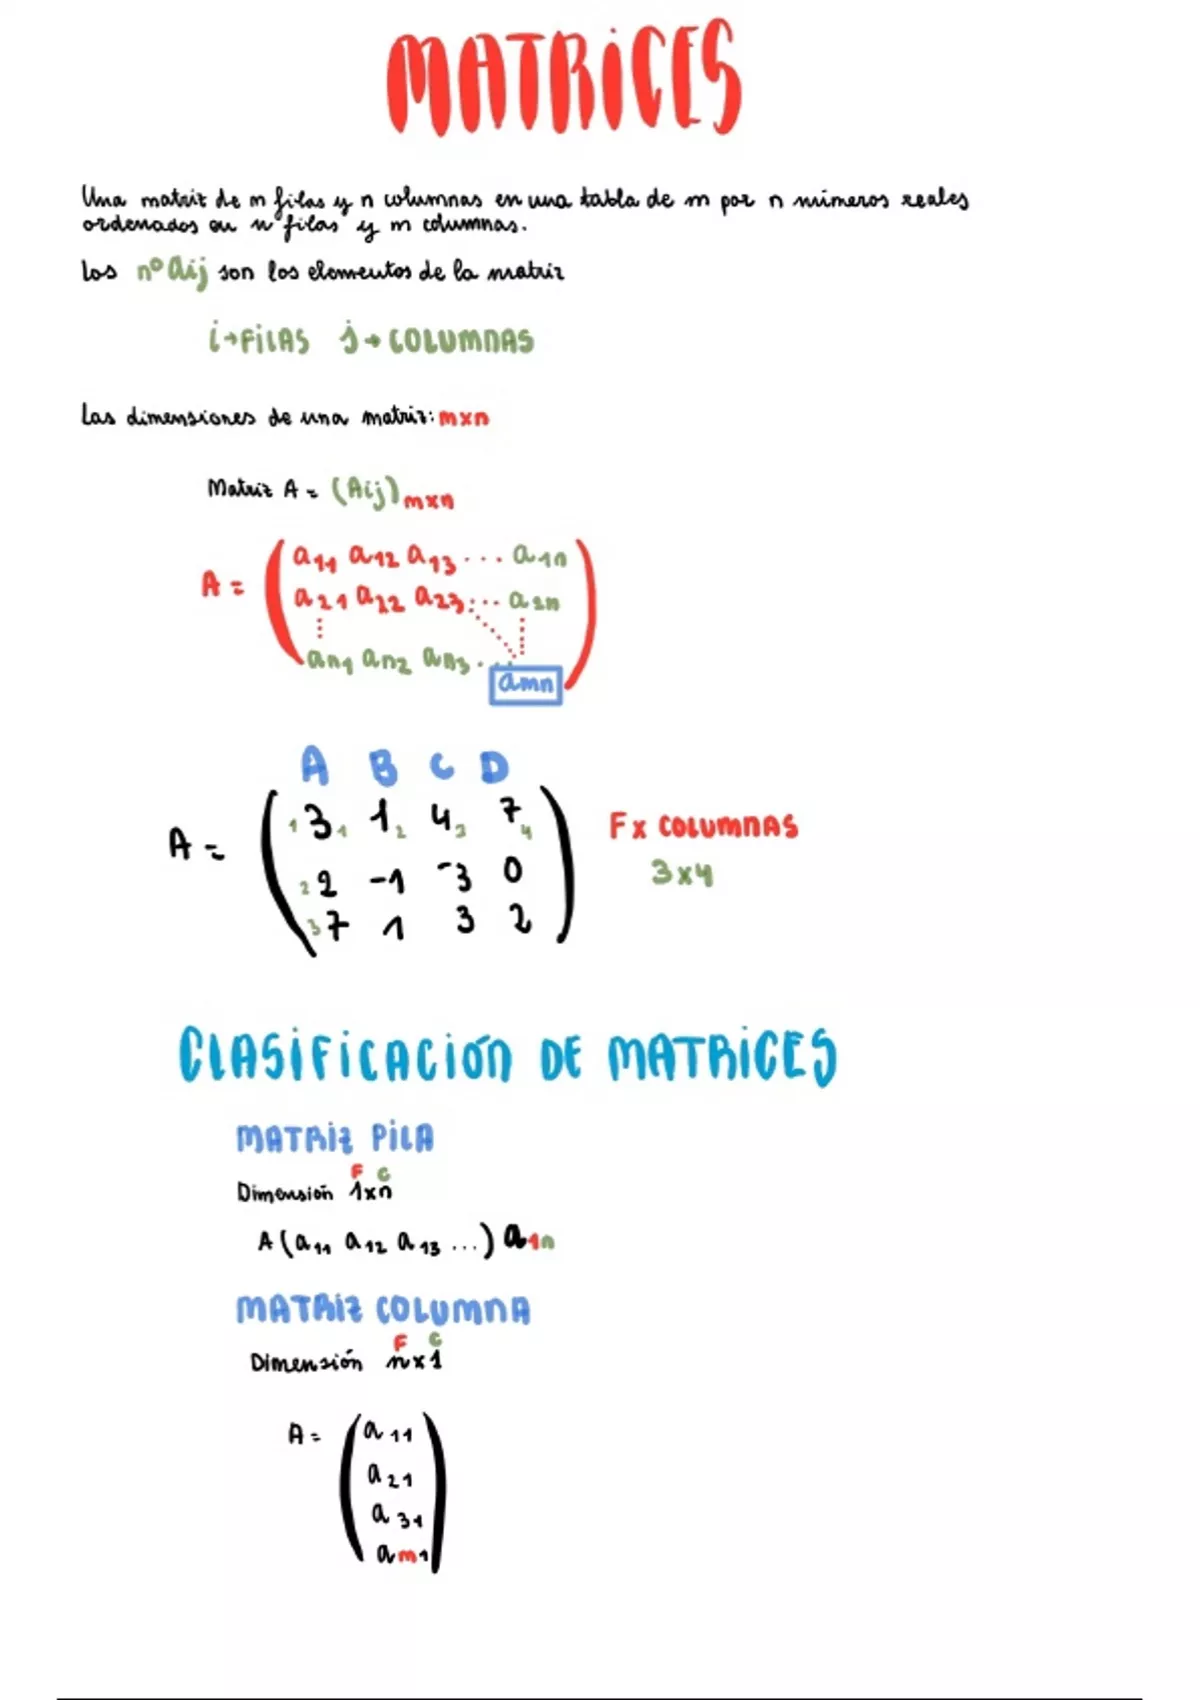 MATRICES
Una matriz de m filas y n columnas en una tabla de m por n números reales
ordenados en n filas y m columnas.
Los nº aij son los elementos de la matriz
i→FILAS j→COLUMNAS
Las dimensiones de una matriz: mxn
Matriz A = (Aij)mxn
a11 a12 a13 ... a1n
A = a21 a22 a23 ... a2n
an1 an2 an3 ... amn
A B C D
1 3 1 1 2 4 3 7 4
A = F x COLUMNAS
2 2 -1 -3 0 3x4
3 7 1 3 2
CLASIFICACIÓN DE MATRICES
MATRIZ FILA
F C
Dimensión 1xn
A (a11 a12 a13 ...) a1n
MATRIZ COLUMNA
F C
Dimensión nx1
A = a11
a21
a31
am1